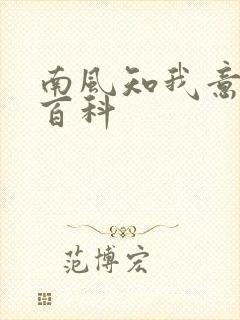 南風知我意
百科
范博宏